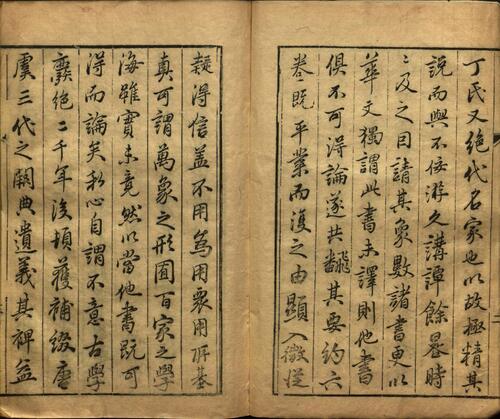 丁氏又絕代名家也以故極精其
說而與不佞游久講譚餘晷時
〻及之因請其象數諸書更以
華文獨謂此書未譯則他書
俱不可得論遂共翻其要約六
卷既卒業而復之由顯入微從
疑得信蓋不用為用眾用所基
真可謂萬象之形囿百家之學
海雖實未竟然以當他書既可
得而論矣私心自謂不意古學
廢絕二千年後頓獲補綴唐
虞三代之闕典遺義其裨益